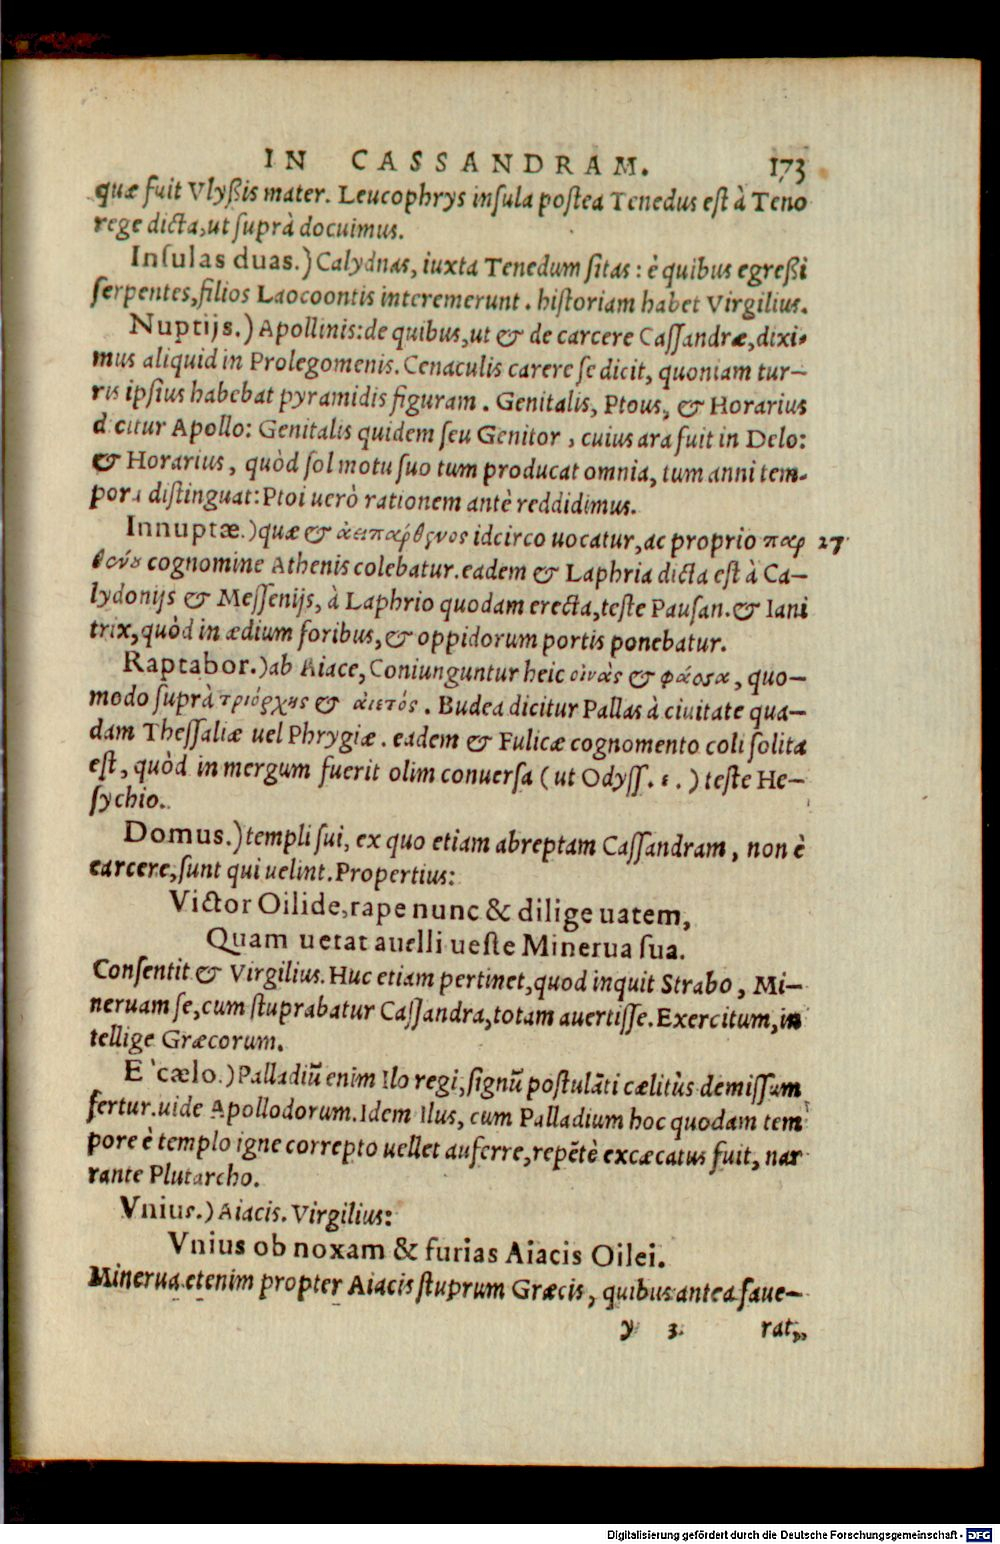 IN CASSANDRAM. 173
quæ fuit Vlyßis mater. Leucophrys insula postea Tenedus est à Teno
rege dicta, ut suprà docuimus.
Insulas duas.) Calydnas, iuxta Tenedum sitas: è quibus egreßi
serpentes, filios Laocoontis interemerunt. historiam habet Virgilius.
Nuptijs.) Apollinis: de quibus, ut & de carcere Cassandræ, dixi-
mus aliquid in Prolegomenis. Cenaculis carere se dicit, quoniam tur-
ris ipsius habebat pyramidis figuram. Genitalis, Ptous, & Horarius
dicitur Apollo: Genitalis quidem seu Genitor, cuius ara fuit in Delo:
& Horarius, quòd sol motu suo tum producat omnia, tum anni tem-
pora distinguat: Ptoi uerò rationem antè reddidimus.
Innuptæ.) quæ & ἀειπαρθένος idcirco uocatur, ac proprio παρ 27
θένου cognomine Athenis colebatur. eadem & Laphria dicta est à Ca-
lydonijs & Messenijs, à Laphrio quodam erecta, teste Pausan. & Iani
trix, quòd in ædium foribus, & oppidorum portis ponebatur.
Raptabor.) ab Aiace, Coniunguntur heic οἰνὰς & φάσσα, quo-
modo suprà τριόρχης & ἀιετός. Budea dicitur Pallas à ciuitate qua-
dam Thessaliæ uel Phrygiæ. eadem & Fulicæ cognomento coli solita
est, quòd in mergum fuerit olim conuersa (ut Odyss. ε.) teste He-
sychio.
Domus.) templi sui, ex quo etiam abreptam Cassandram, non è
carcere, sunt qui uelint. Propertius:
Victor Oilide, rape nunc & dilige uatem,
Quam uetat auelli ueste Minerua sua.
Consentit & Virgilius. Huc etiam pertinet, quod inquit Strabo, Mi-
neruam se, cum stuprabatur Cassandra, totam auertisse. Exercitum, in
tellige Græcorum.
E' cælo.) Palladiũ enim Ilo regi, signũ postulāti cælitùs demissum
fertur. uide Apollodorum. Idem Ilus, cum Palladium hoc quodam tem
pore è templo igne correpto uellet auferre, repẽtè excæcatus fuit, nar
rante Plutarcho.
Vnius.) Aiacis. Virgilius:
Vnius ob noxam & furias Aiacis Oilei.
Minerua etenim propter Aiacis stuprum Græcis, quibus antea faue-
y 3 rat,
Digitalisierung gefördert durch die Deutsche Forschungsgemeinschaft - DFG